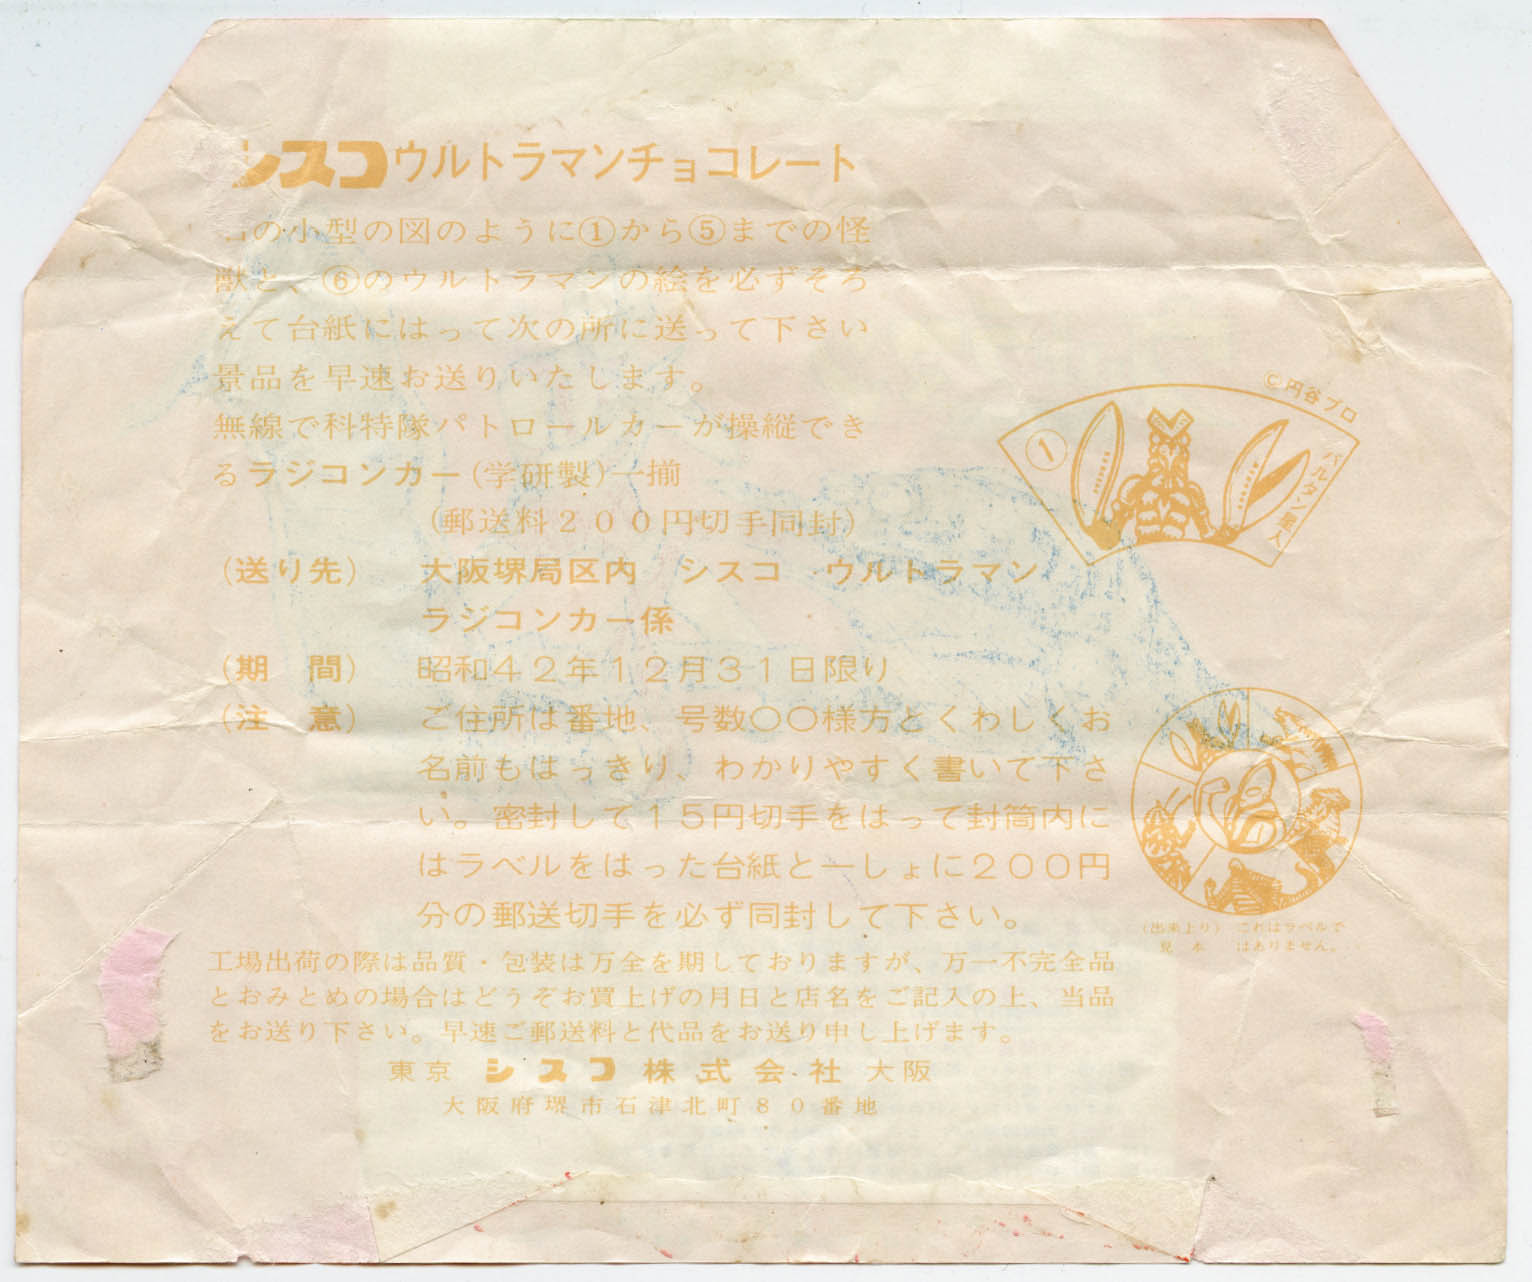 シスコウルトラマンチョコレート
の小型の図のように①から⑤までの怪
獣と、⑥のウルトラマンの絵を必ずそろ
えて台紙にはって次の所に送って下さい
景品を早速お送りいたします。
無線で科特隊パトロールカーが操縦でき
るラジコンカー(学研製)一揃
(郵送料200円切手同封)
(送り先) 大阪堺局区内 シスコ ウルトラマン
ラジコンカー係
(期 間) 昭和42年12月31日限り
(注 意) ご住所は番地、号数〇〇様方とくわしくお
名前もはっきり、わかりやすく書いて下さ
い。密封して15円切手をはって封筒内に
はラベルをはった台紙と一しょに200円
分の郵送切手を必ず同封して下さい。
工場出荷の際は品質・包装は万全を期しておりますが、万一不完全品
とおみとめの場合はどうぞお買上げの月日と店名をご記入の上、当品
をお送り下さい。早速ご郵送料と代品をお送り申し上げます。
東京 シスコ株式会社 大阪
大阪府堺市石津北町80番地
©円谷プロ
①
バルタン星人
(出来上り) これはラベルで
見本 はありません。